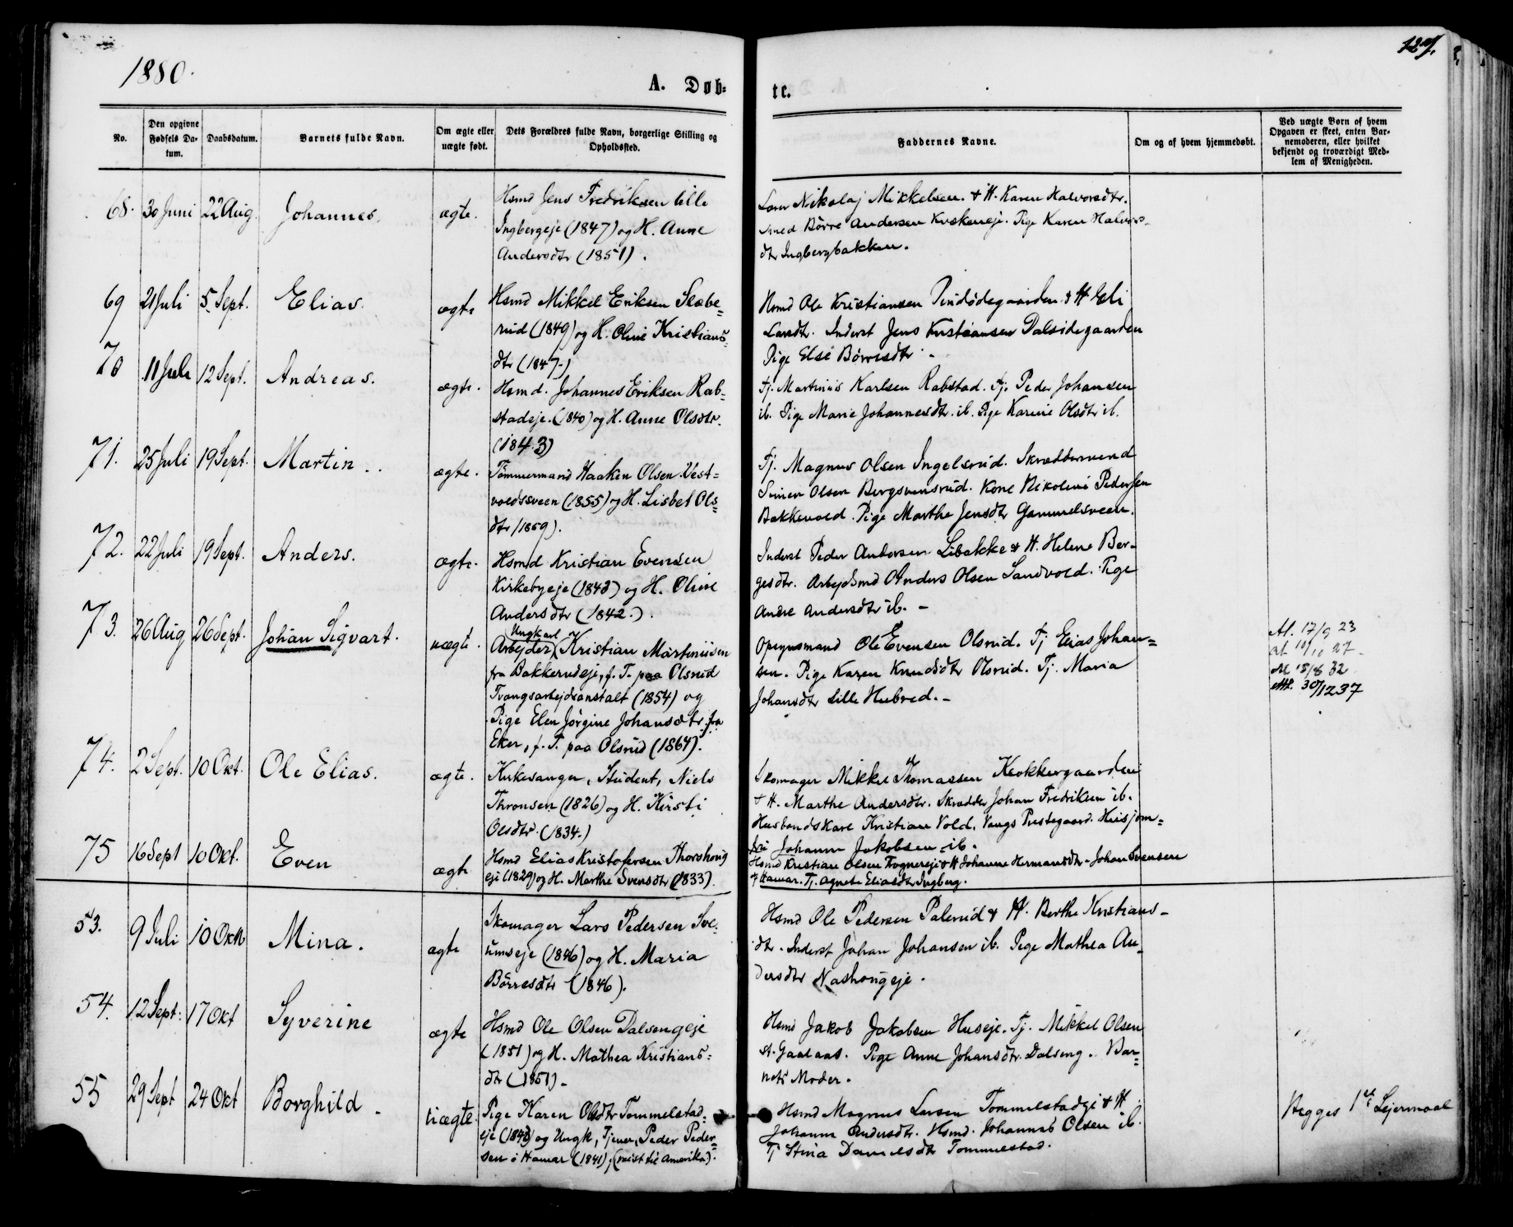 1880.
127.
A. Døb-
te.
No.
Den opgivne Fødsels Da-tum.
Daabsdatum.
Barnets fulde Navn.
Om ægte eller uægte født.
Dets Forældres fulde Navn, borgerlige Stilling og Opholdssted.
Faddernes Navne.
Om og af hvem hjemmedøbt.
Ved uægte Børn af hvem Opgaven er skeet, enten Bar-nemoderen, eller hvilket bekjendt og troværdigt Med-lem af Menigheden.
68. 30 Juni 22 Aug. Johannes. ægte.
Hsmd Jens Fredriksen lille
Ingbergeje (1847) og H. Anne
Andersdtr (1851).
Nikolaj Mikkelsen. & H. Karen Halvorsdtr.
Børre Andersen Kuskeneje. Pige Karen Halvors-
dtr Ingbergbakken.
69 21 Juli 5 Sept. Elias. ægte
Hsmd Mikkel Eriksen Skebe-
rud (1849) og H. Oline Kristians-
dtr (1847)
Hsmd Ole Kristiansen & H Eli
Larsdtr. Inderst Jens Kristiansen Dalsidegaarden
Pige Else Børresdtr.
70 11 Juli 12 Sept. Andreas. ægte.
Hsmd. Johannes Eriksen Rab-
stadeje. (1840) og H. Anne Olsdtr.
(1843)
Tj. Martinus Karlsen Rabstad. Tj. Peder Johansen
ib. Pige Marie Johannesdtr. ib. Pige Karine Olsdtr ib.
71. 25 Juli 19 Sept. Martin. ægte.
Tømmermand Haaken Olsen Vest-
voldssveen (1855) og H. Lisbet Ols-
dtr (1859).
Tj. Magnus Olsen Ingelsrud. Skræddersvend
Simen Olsen Bergsvensrud. Kone Nikoline Pedersen
Bakkevold. Pige Marthe Jensdtr Gammelsveen.
72. 22 Juli 19 Sept. Anders. ægte.
Hsmd Kristian Evensen
Kirkebyeje (1843) og H. Oline
Andersdtr (1842.).
Inderst Peder Andersen Libakke & H. Helene Ber-
gesdtr. Arbejdsmd Anders Olsen Sandvold. Pige
Andersdtr ib. -
73. 26 Aug 26 Sept. Johan Sigvart. uægte.
Ungkarl
Arbejder, Kristian Martiniusen
fra Bakkerudeje, f. T. paa Olsrud
Tvangsarbejdsanstalt (1854) og
Pige Elen Jørgine Johansdtr. fra
Eker, f. T. paa Olsrud (1864).
Opsynsmand Ole Evensen Olsrud. Tj Elias Johan-
sen. Pige Karen Knudsdtr Olsrud. Tj. Maria
Johansdtr Lille Hubred. -
At. 17/9 23
At. 10/10 27
At 18/8 32
Att. 30/12 37
74. 2 Sept. 10 Okt. Ole Elias. ægte.
Kirkesanger, Student, Niels
Thronsen (1826) og H. Kirsti
Olsdtr (1834.)
Skomager Mikkel Thomassen Klokkergaarden
& H. Marthe Andersdtr. Skrædder Johan Fredriksen ib.
Husbondskarl Kristian Vold, Vangs Prestegaard. Husjom-
fru Johanne Jakobsen ib.
75 16 Sept 10 Okt. Even ægte
Hsmd Elias Kristofersen Thorshoug
eje (1829) og H. Marthe Svensdtr (1833).
Hsmd Kristian Olsen Fogneeje & H Johanne Hermansdtr. Johan Svensen
Hamar. Tj. Agnete Eliasdtr Ingberg.
53. 9 Juli 10 Okt Mina. ægte
Skomager Lars Pedersen Sve-
umseje (1846) og H. Maria
Børresdtr (1846).
Hsmd Ole Pedersen Palerud & H. Berthe Kristians-
dtr. Inderst Johan Johansen ib. Pige Mathea An-
dersdtr Nashougeje.
54. 12 Sept. 17 Okt Syverine ægte
Hsmd Ole Olsen Dalsengeje
(1851) og H. Mathea Kristians-
dtr (1851)-
Hsmd Jakob Jakobsen Huseje. Tj. Mikkel Olsen
st. Gaalaas. Pige Anne Johansdtr. Dalseng. Bar-
nets Moder.
55 29 Sept 24 Okt Borghild. uægte
Pige Karen Olsdtr Tommelstad-
eje (1843) og Ungk, Tjener, Peder Peder-
sen i Hamar (1841), (reist til Amerika).
Hsmd Magnus Larsen Tommelstadeje & H
Johanne Andersdtr. Hsmd. Johannes Olsen ib.
Tj Stina Danielsdtr Tommelstad.
Begges 1ste Lejermaal